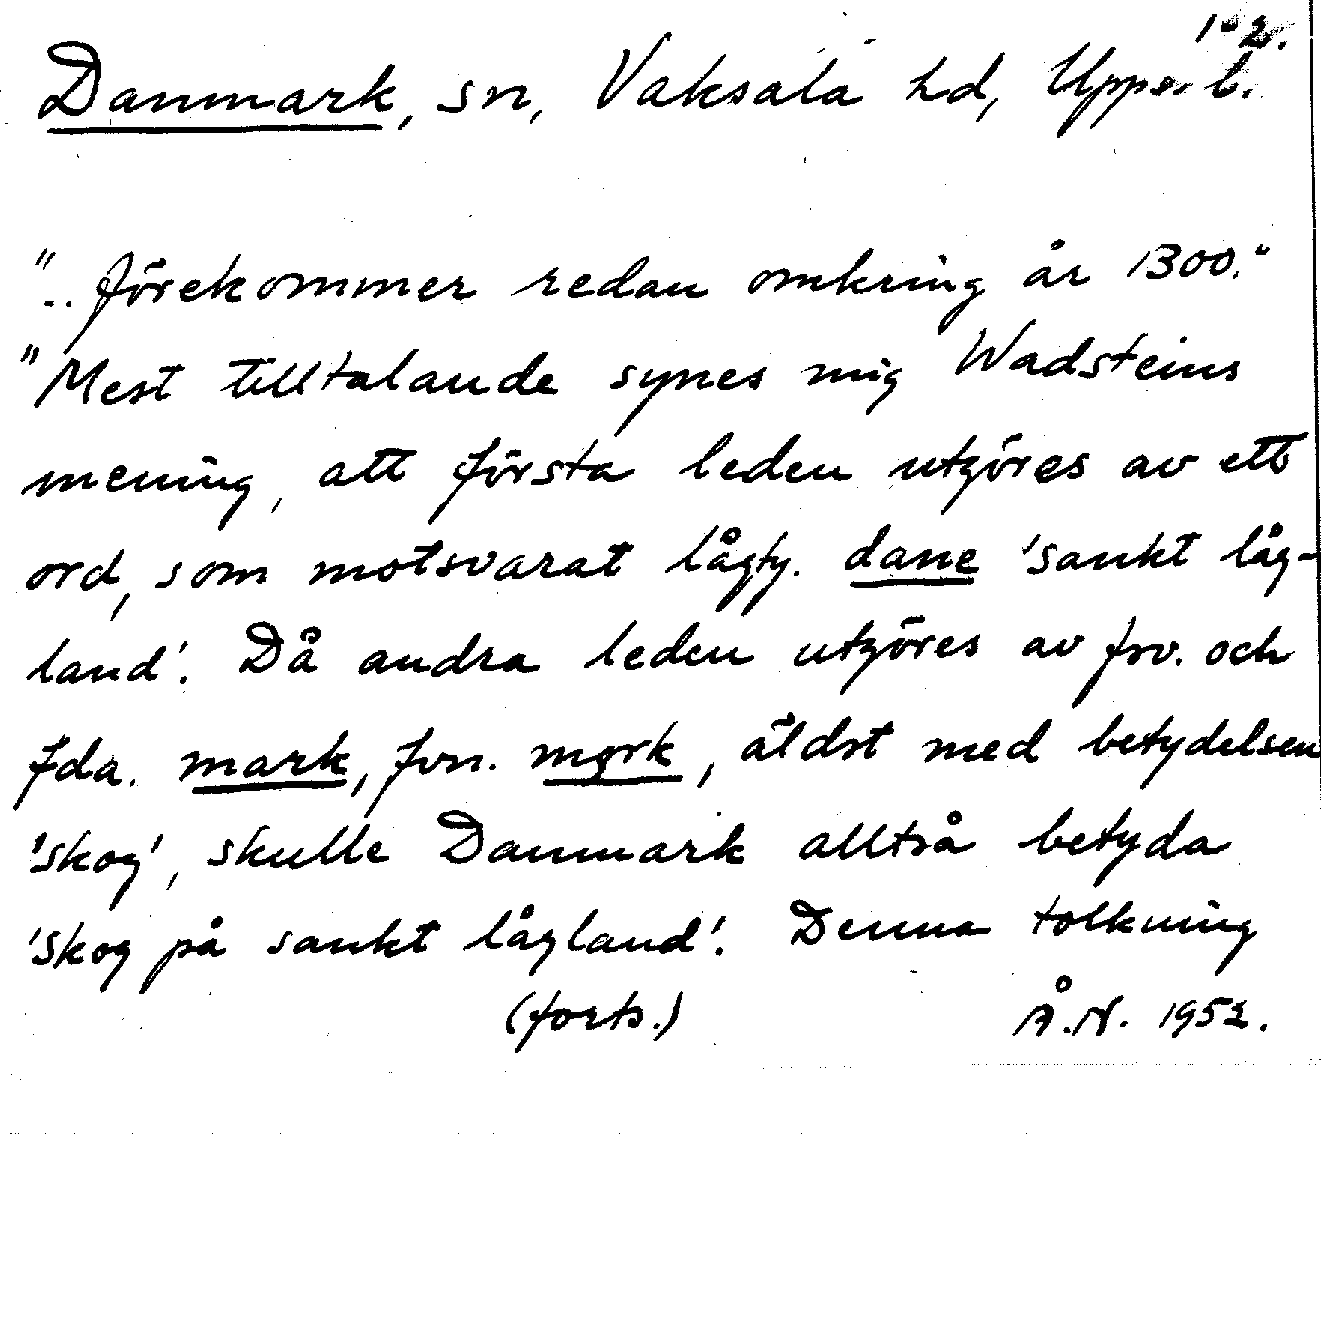 1-2.
Danmark, sn, Vaksala hd, Upps. l.
".. förekommer redan omkring år 1300."
"Mest tilltalande synes mig Wadsteins
mening, att första leden utgöres av ett
ord, som motsvarat lågty. dane 'sankt låg-
land'. Då andra leden utgöres av fsv. och
fda. mark, fvn. mǫrk, äldst med betydelsen
'skog', skulle Danmark alltså betyda
'skog på sankt lågland'. Denna tolkning
(forts.) Å.N. 1952.